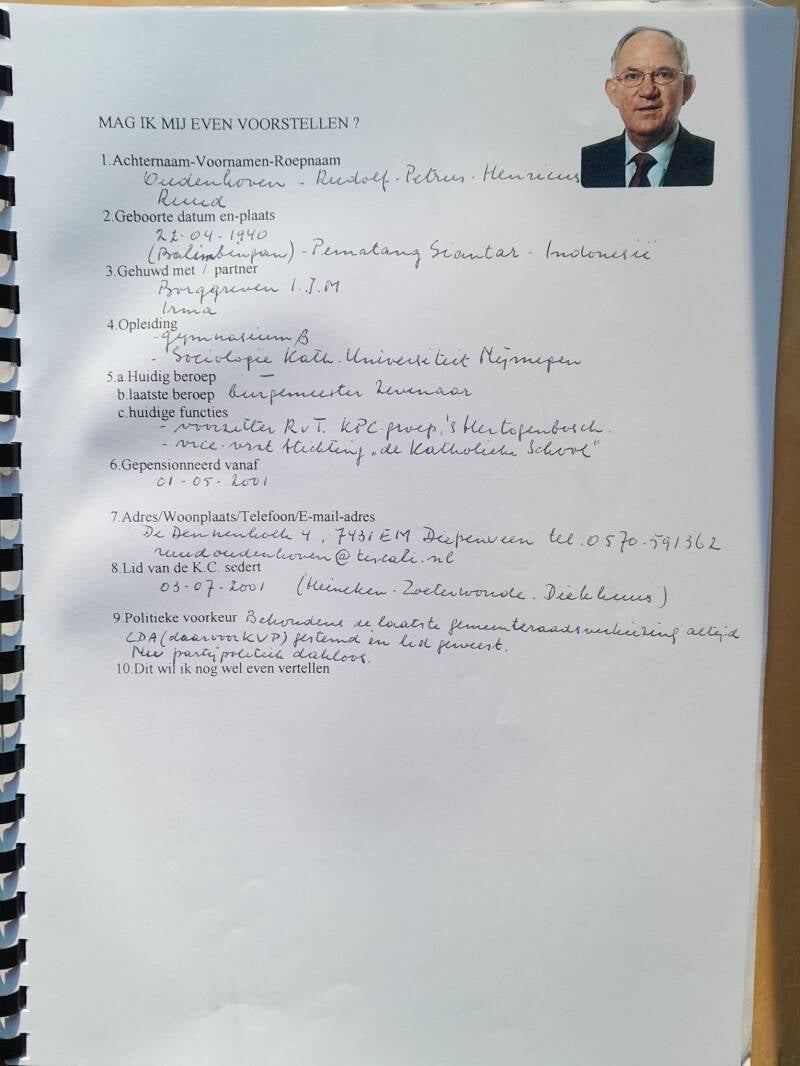 MAG IK MIJ EVEN VOORSTELLEN ?
1.Achternaam-Voornamen-Roepnaam
Oudenhoven - Rudolf - Petrus - Henricus
Ruud
2.Geboorte datum en-plaats
22-04-1940
(Balimbingan) - Pematang Siantar - Indonesië
3.Gehuwd met / partner
Borggreven I.J.M
Irma
4.Opleiding
- gymnasium β
- Sociologie Kath. Universiteit Nijmegen
5.a.Huidig beroep —
b.laatste beroep burgemeester Zevenaar
c.huidige functies
- voorzitter RvT. KPC-groep, 's Hertogenbosch.
- vice-vrzt Stichting „de Katholieke School"
6.Gepensionneerd vanaf
01-05-2001
7.Adres/Woonplaats/Telefoon/E-mail-adres
De Dennenholk 4, 7431 EM Diepenveen tel. 0570-591362
ruudoudenhoven@tiscali.nl
8.Lid van de K.C. sedert
03-07-2001 (Heineken - Zoeterwoude - Diekhuus)
9.Politieke voorkeur Behoudens de laatste gemeenteraadsverkiezing altijd
CDA (daarvoor KVP) gestemd en lid geweest.
Nu partijpolitiek dakloos.
10.Dit wil ik nog wel even vertellen